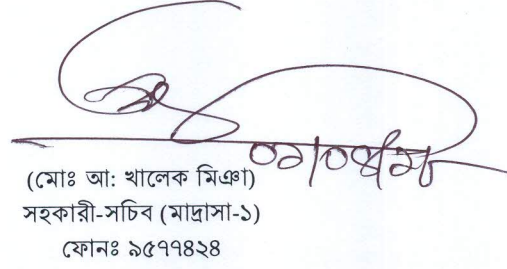 (মোঃ আ: খালেক মিঞা)
সহকারী-সচিব (মাদ্রাসা-১)
ফোনঃ ৯৫৭৭৪২৪